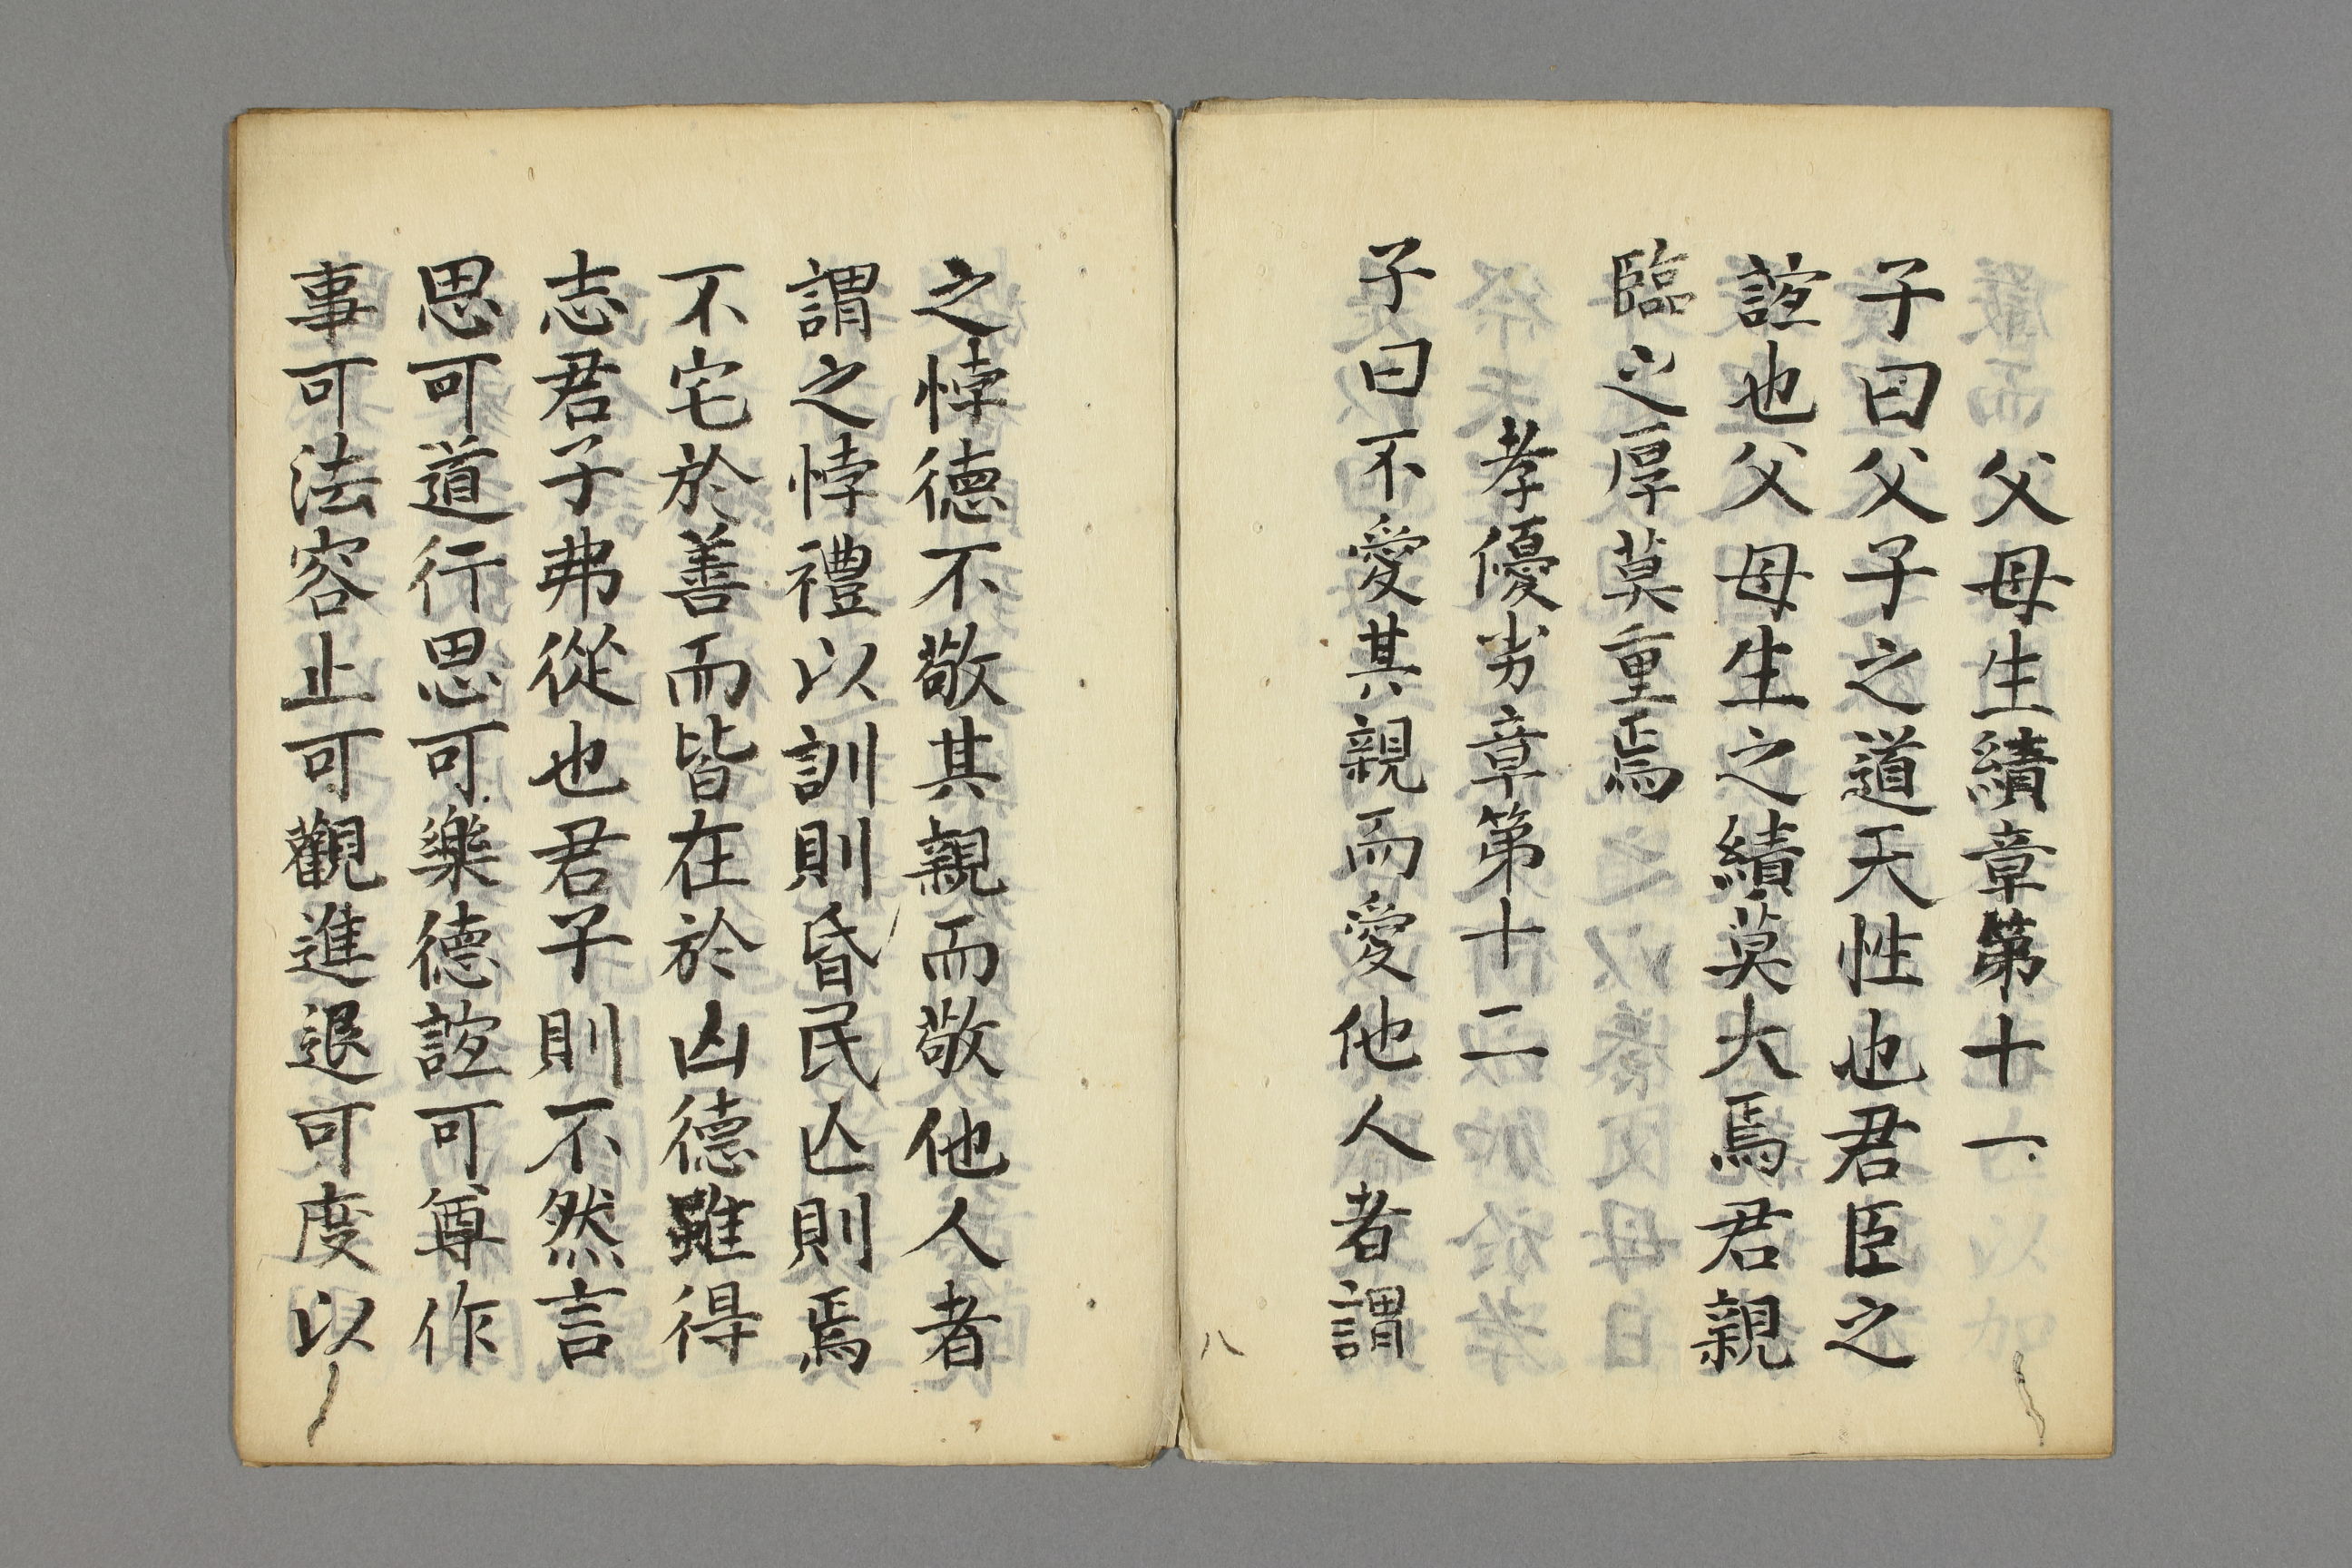 父母生績章第十一
子曰父子之道天性也君臣之
誼也父母生之績莫大焉君親
臨之厚莫重焉
孝優劣章第十二
子曰不愛其親而愛他人者謂
八
之悖德不敬其親而敬他人者
謂之悖禮以訓則昏民亾則焉
不宅於善而皆在於凶德雖得
志君子弗從也君子則不然言
思可道行思可樂德誼可尊作
事可法容止可觀進退可度以